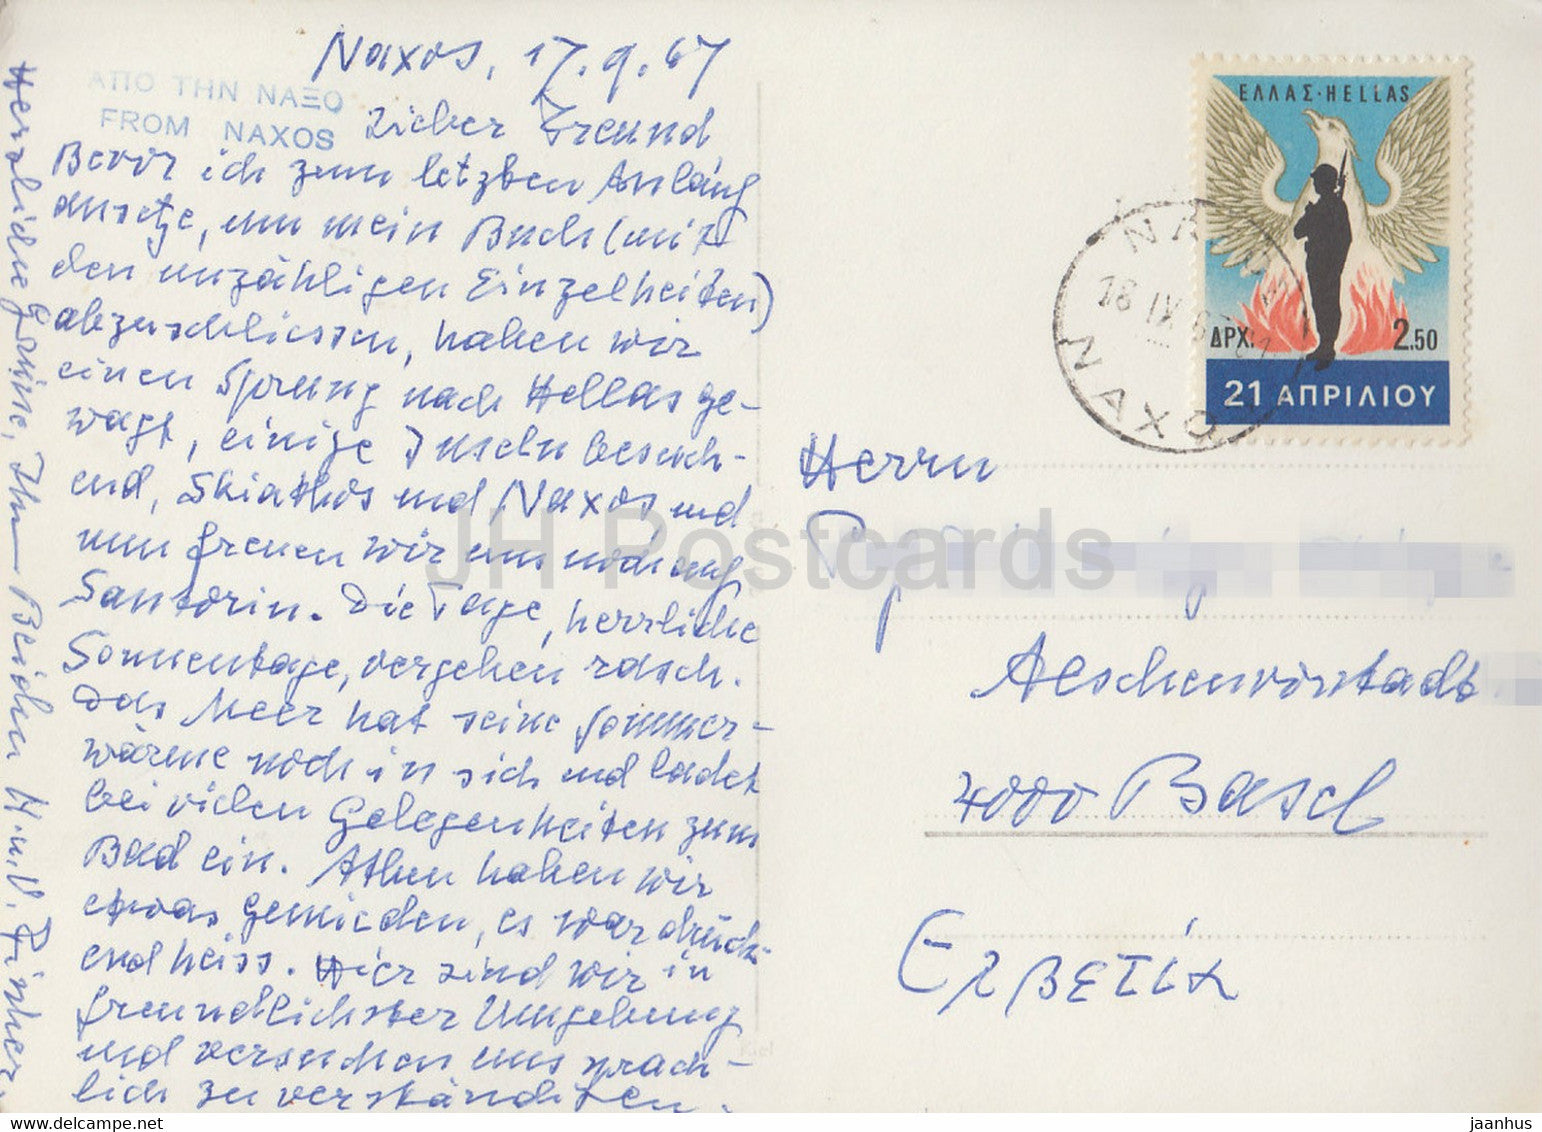 Naxos, 17.9.67
ΑΠΟ ΤΗΝ ΝΑΞΟ
FROM NAXOS
Lieber Freund
Bevor ich zum letzten Anlauf
ansetze, um mein Buch (mit
den unzähligen Einzelheiten)
abzuschliessen, haben wir
einen Sprung nach Hellas ge-
wagt, einige Inseln besuch-
end, Skiathos und Naxos und
nun freuen wir uns noch auf
Santorin. Die Tage, herrliche
Sonnentage, vergehen rasch.
Das Meer hat seine Sommer-
wärme noch in sich und ladet
bei vielen Gelegenheiten zum
Bad ein. Athen haben wir
etwas gemieden, es war drück-
end heiss. Hier sind wir in
freundlichster Umgebung
und versuchen uns sprach-
lich zu verständigen.
Herzliche Grüsse, Ihnen Beiden H. u. V.
ΕΛΛΑΣ·HELLAS
ΔΡΧ. 2.50
21 ΑΠΡΙΛΙΟΥ
ΝΑΞΟΣ
18 IX 67
NAXOS
Herrn
Aeschenvorstadt
4000 Basel
Ελβετία
JH Postcards
Kiel
jaanhus www.delcampe.net